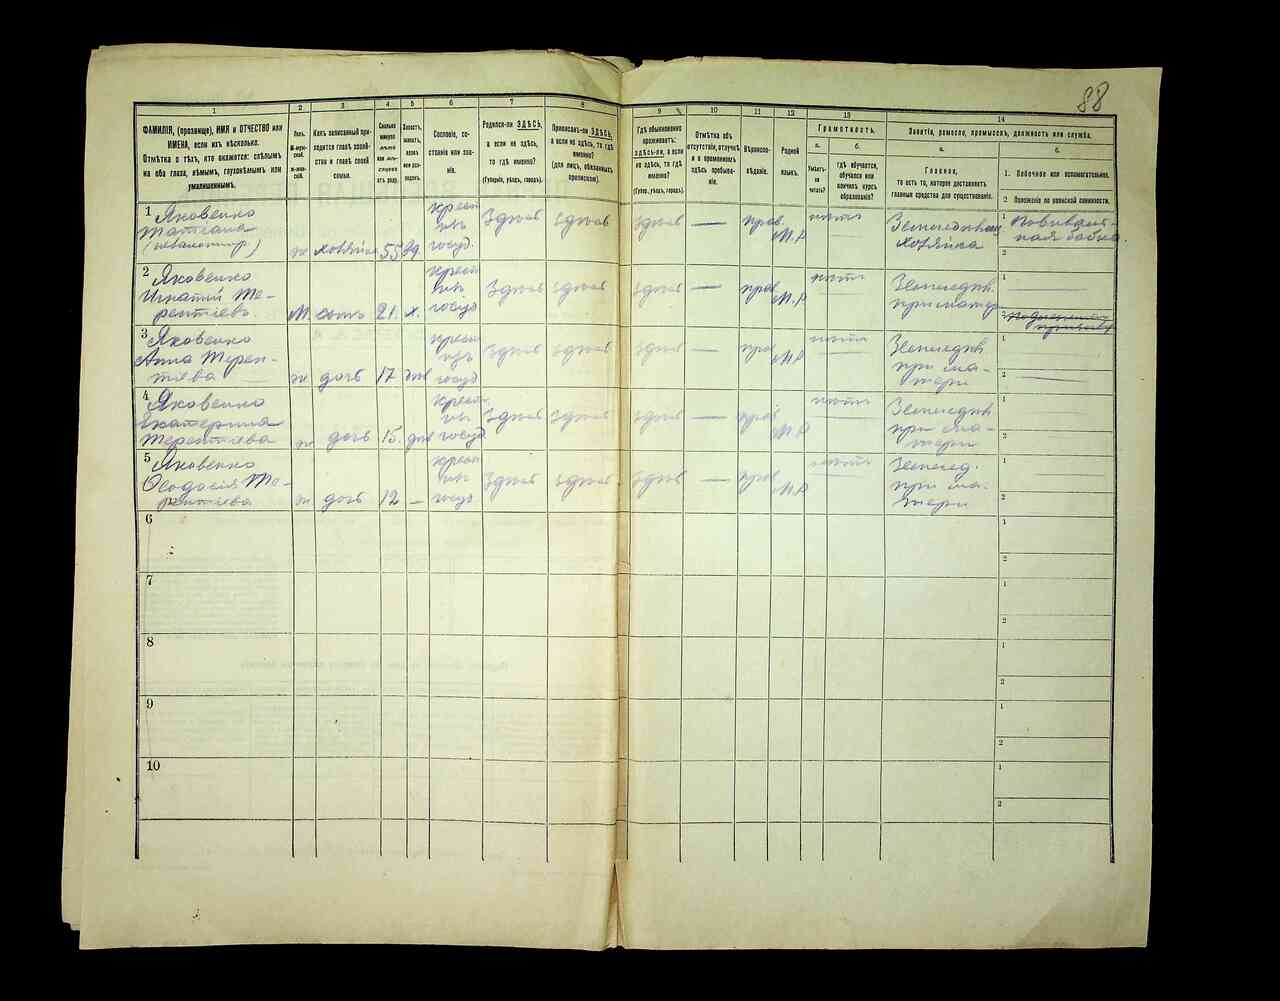 88
1
2
3
4
5
6
7
8
9
10
11
12
13
14
ФАМИЛІЯ, (прозвище), ИМЯ и ОТЧЕСТВО или
ИМЕНА, если ихъ нѣсколько.
Отмѣтка о тѣхъ, кто окажется: слѣпымъ
на оба глаза, нѣмымъ, глухонѣмымъ или
умалишеннымъ.
Полъ.
М-мужс-
кой.
Ж-жен-
скій.
Какъ записанный при-
ходится главѣ хозяй-
ства и главѣ своей
семьи.
Сколько
минуло
лѣтъ
или мѣ-
сяцевъ
отъ роду.
Холостъ,
женатъ,
вдовъ
или раз-
веденъ.
Сословіе, со-
стояніе или зва-
ніе.
Родился-ли ЗДѢСЬ,
а если не здѣсь,
то гдѣ именно?
(Губернія, уѣздъ, городъ).
Приписанъ-ли ЗДѢСЬ,
а если не здѣсь, то гдѣ
именно?
(для лицъ, обязанныхъ
припискою).
Гдѣ обыкновенно
проживаетъ:
здѣсь-ли, а если
не здѣсь, то гдѣ
именно?
(Губер., уѣздъ, городъ).
Отмѣтка объ
отсутствіи, отлучкѣ
и о временномъ
здѣсь пребыва-
ніи.
Вѣроиспо-
вѣданіе.
Родной
языкъ.
Грамотность.
а.
б.
Умѣетъ-
ли
читать?
гдѣ обучается,
обучался или
кончилъ курсъ
образованія?
Занятія, ремесло, промыселъ, должность или служба.
а.
б.
Главное,
то есть то, которое доставляетъ
главныя средства для существованія.
1. Побочное или вспомогательное.
2 Положеніе по воинской повинности.
1 Яковенко
Татіана
ж хозяйка 55 вд.
крест
изъ
госуд.
здѣсь здѣсь здѣсь — прав. М.Р нѣтъ
Земледѣліе
хозяйка
1 Повиваль-
ная бабка
2
2 Яковенко
Игнатій Те-
рентіевъ
М. сынъ 21. х.
крест
изъ
госуд
здѣсь здѣсь здѣсь — прав М.Р нѣтъ
Земледѣл.
при матер
1
2
3 Яковенко
Анна Терен-
тіева
ж дочь 17 дѣв
крест
изъ
госуд
здѣсь здѣсь здѣсь — прав М.Р нѣтъ
Земледѣл
при ма-
тери
1
2
4 Яковенко
Екатерина
Терентіева
ж дочь 15. дѣв
крест
изъ
госуд
здѣсь здѣсь здѣсь — прав М.Р нѣтъ
Земледѣл
при ма-
тери
1
2
5 Яковенко
Ѳеодосія Те-
рентіева
ж дочь 12 —
крест
изъ
госуд
здѣсь здѣсь здѣсь — прав М.Р нѣтъ
Земледѣл.
при ма-
тери
1
2
6
1
2
7
1
2
8
1
2
9
1
2
10
1
2